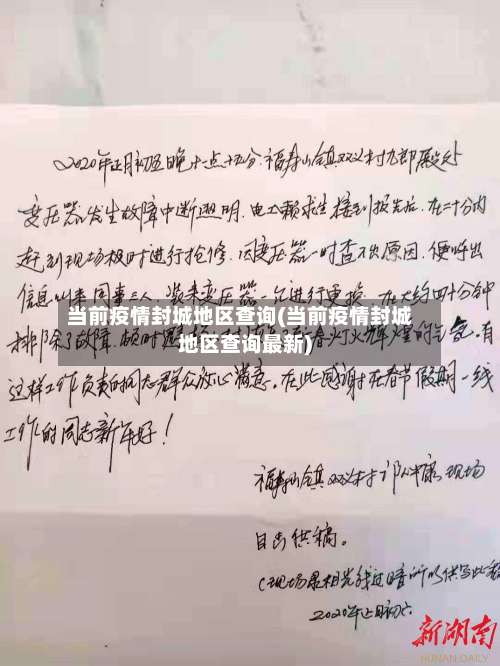 2020年正月初五晚十一点十五分福寿山镇双义村九郎殿
变压器发生故障中断照明.电工赖求生接到报告后.在二十分内
赶到现场极时进行抢修.因变压器一时查不出原因.便呼出
信息叫来同事三人.装来变压器一台进行更换.在大约四十分钟
当前疫情封城地区查询(当前疫情封城
排除了故障.顿时
地区查询最新)
灯火辉煌的
有
这样工作负责的同志群众放心满意.在此感谢在春节假期一线
工作的同志新年好!
福寿山镇双义村 现场
目击供稿。
2020年正月初六
新湖南
HUNAN DAILY